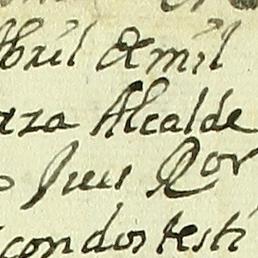 Abril de mil
arza Alcalde
o Jues Por
con dos testi